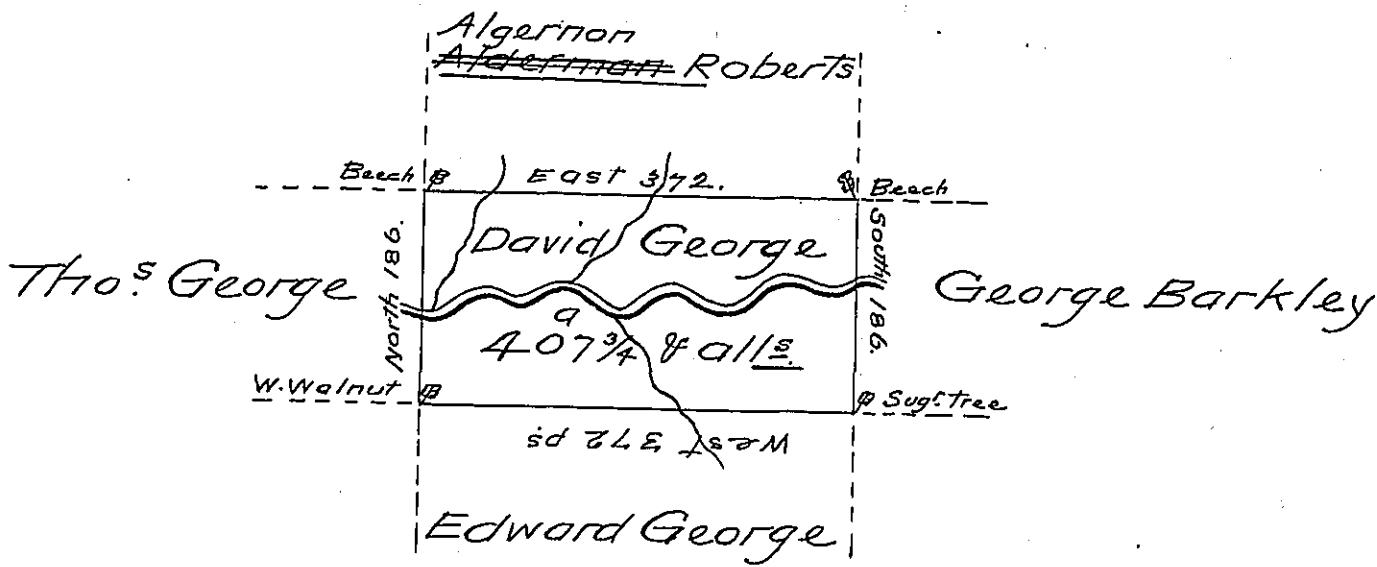 Algernon
Alderman Roberts
Beech East 372. Beech
North 186.
David George
South 186.
Thos. George
George Barkley
a
407 3/4 & alls.
W. Walnut
Sugr. Tree
West 372 ps
Edward George